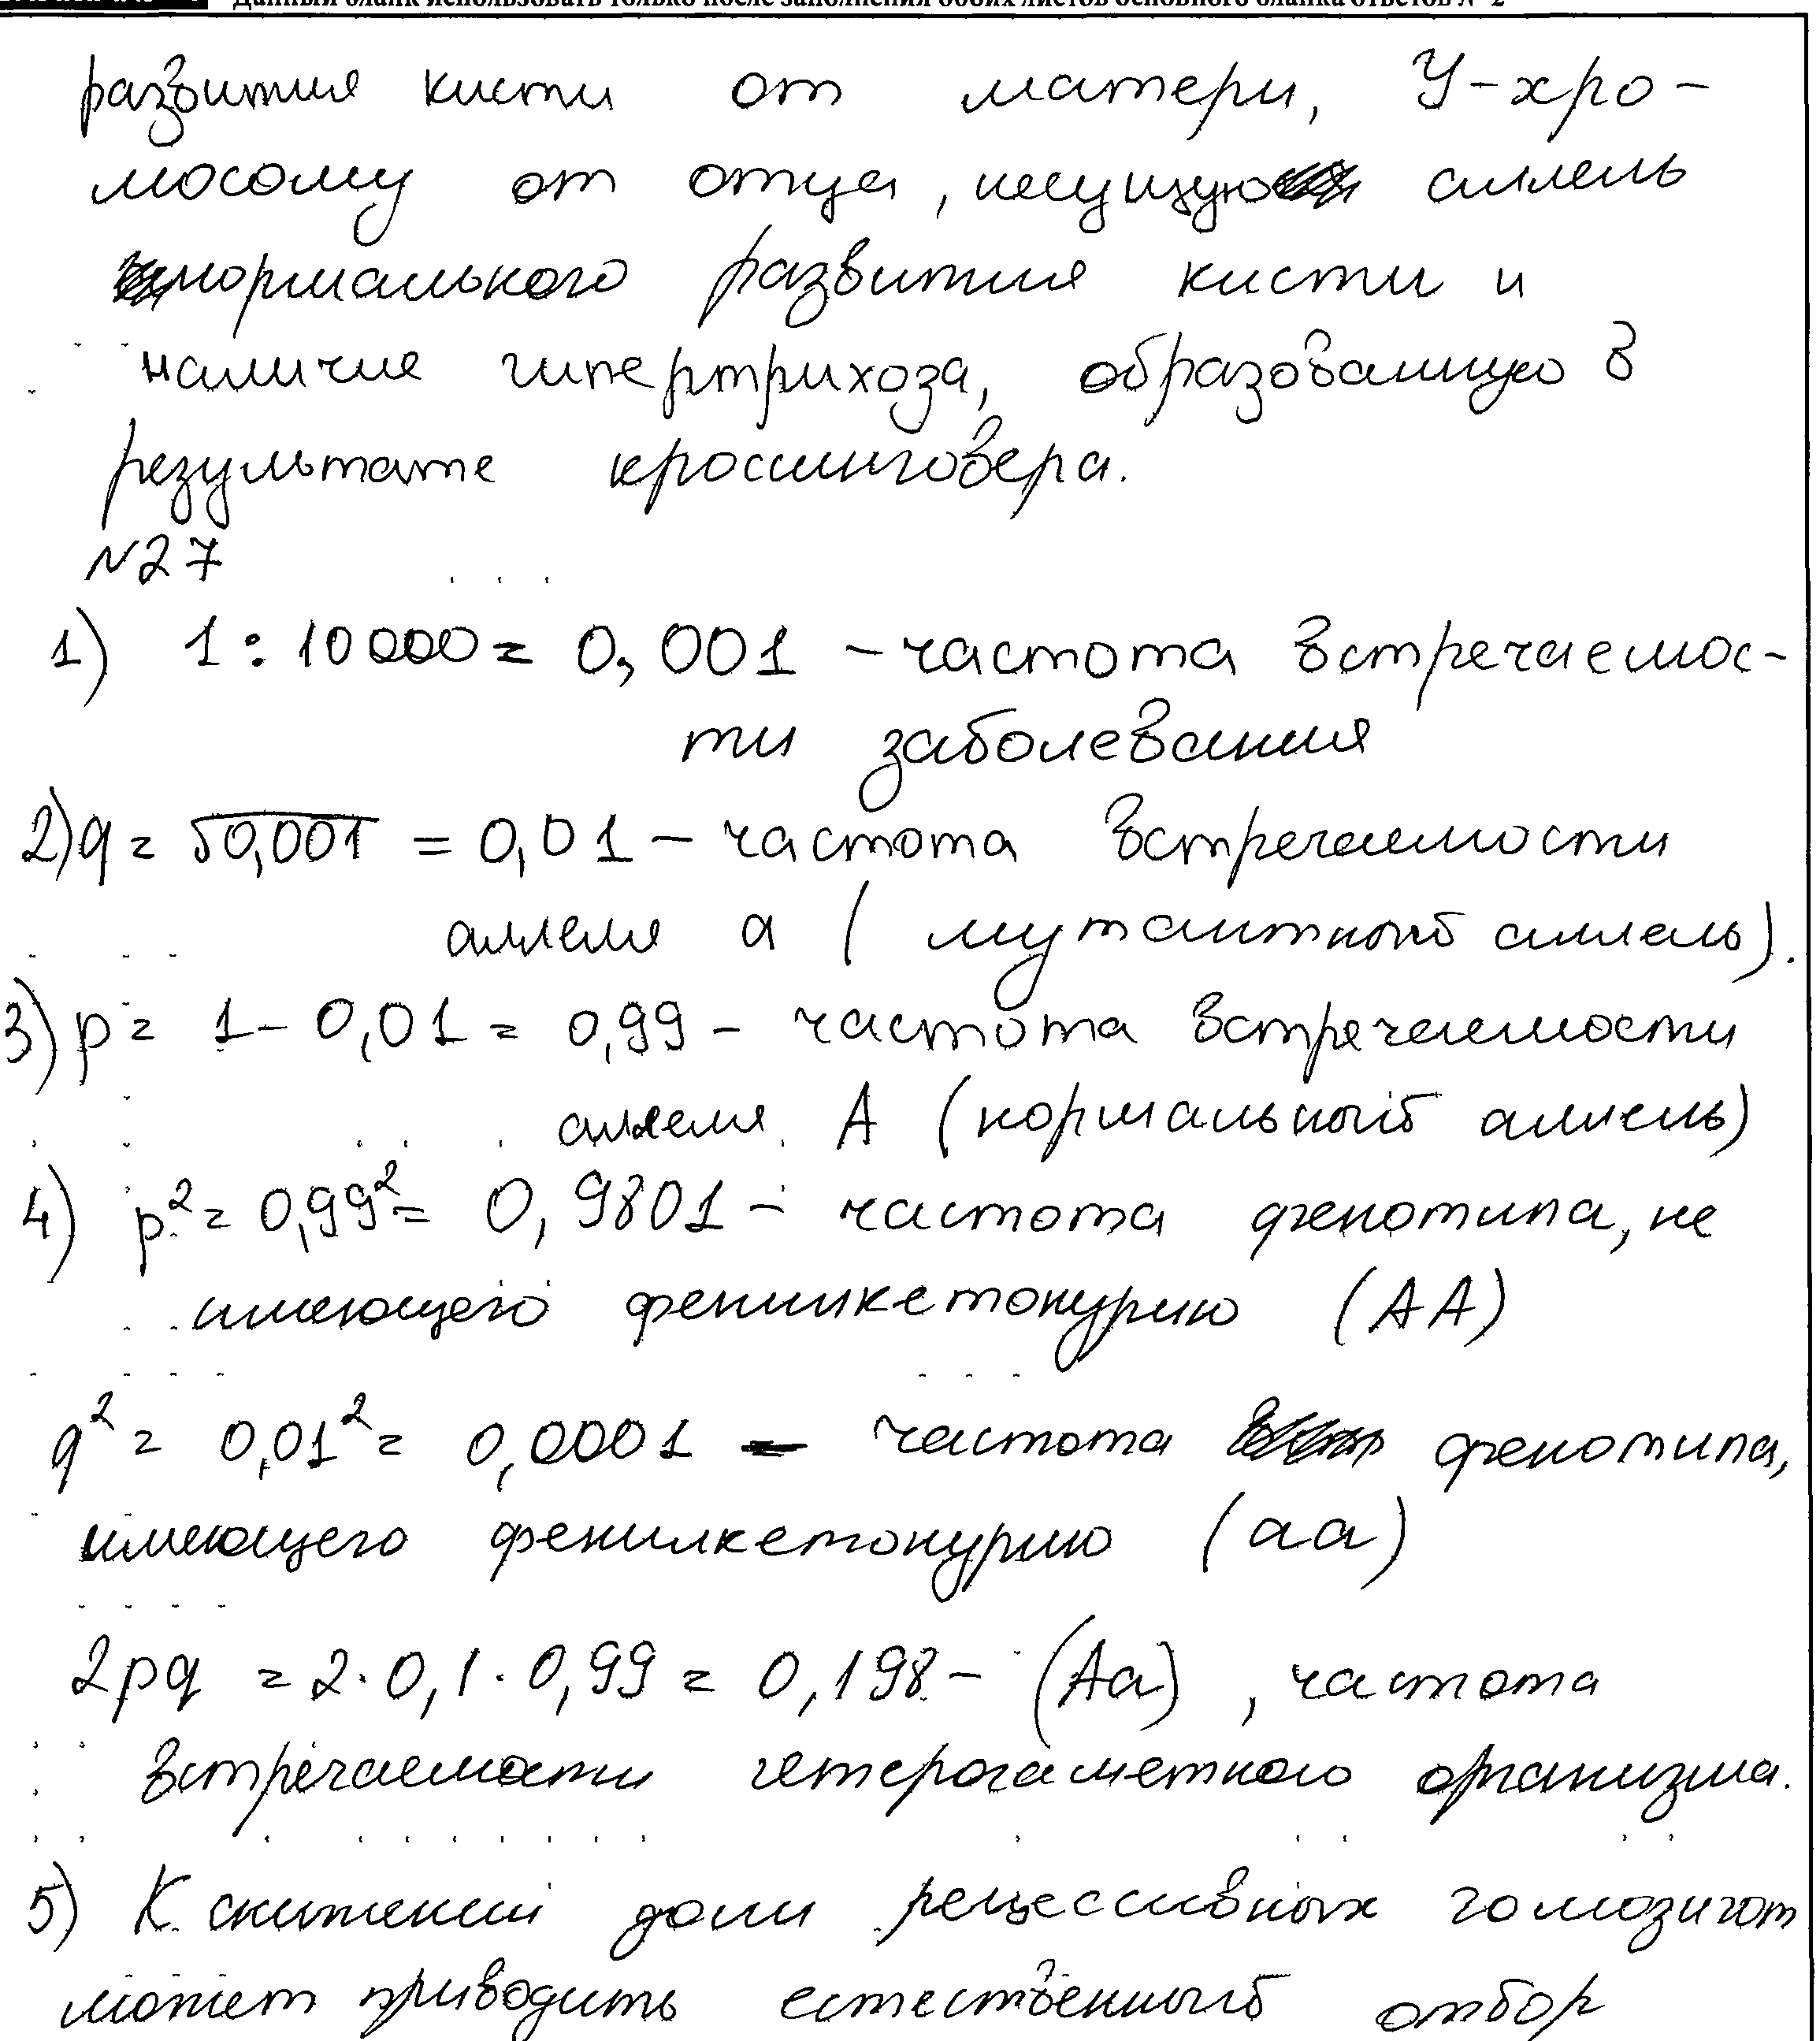 Данный бланк использовать только после заполнения обоих листов основного бланка ответов № 2
развития кисти от матери, У-хро-
мосому от отца, несущую аллель
нормального развития кисти и
наличие гипертрихоза, образованную в
результате кроссинговера.
№27
1) 1:10000= 0,001 - частота встречаемос-
ти заболевания
2) q= √0,001 = 0,01 - частота встречаемости
аллеля а (мутантный аллель).
3) p= 1-0,01= 0,99 - частота встречаемости
аллеля А (нормальный аллель)
4) p²= 0,99²= 0,9801 - частота фенотипа, не
имеющего фенилкетонурию (АА)
q²= 0,01²= 0,0001 - частота фенотипа,
имеющего фенилкетонурию (аа)
2pq = 2·0,1·0,99= 0,198 - (Аа), частота
встречаемости гетерогаметного организма.
5) К снижений доли рецессивных гомозигот
может приводить естественный отбор